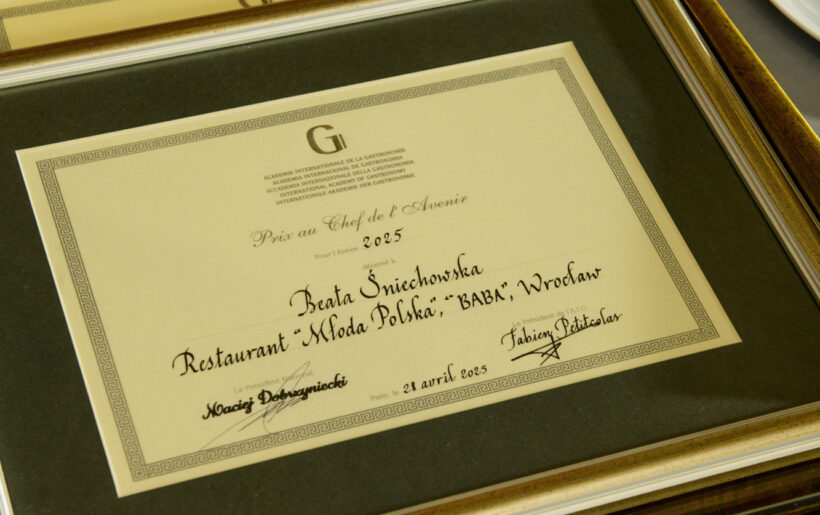 G
ACADEMIE INTERNATIONALE DE LA GASTRONOMIE
ACADEMIA INTERNACIONAL DE GASTRONOMIA
ACCADEMIA INTERNAZIONALE DELLA GASTRONOMIA
INTERNATIONAL ACADEMY OF GASTRONOMY
INTERNATIONALE AKADEMIE DER GASTRONOMIE
Prix au Chef de l'Avenir
Pour l'Année 2025
décerné à
Beata Śniechowska
Restaurant "Młoda Polska", "BABA", Wrocław
Le Président National
Maciej Dobrzyniecki
Paris, le 28 avril 2025
Le Président de l'A.I.G.
Fabien Petitcolas